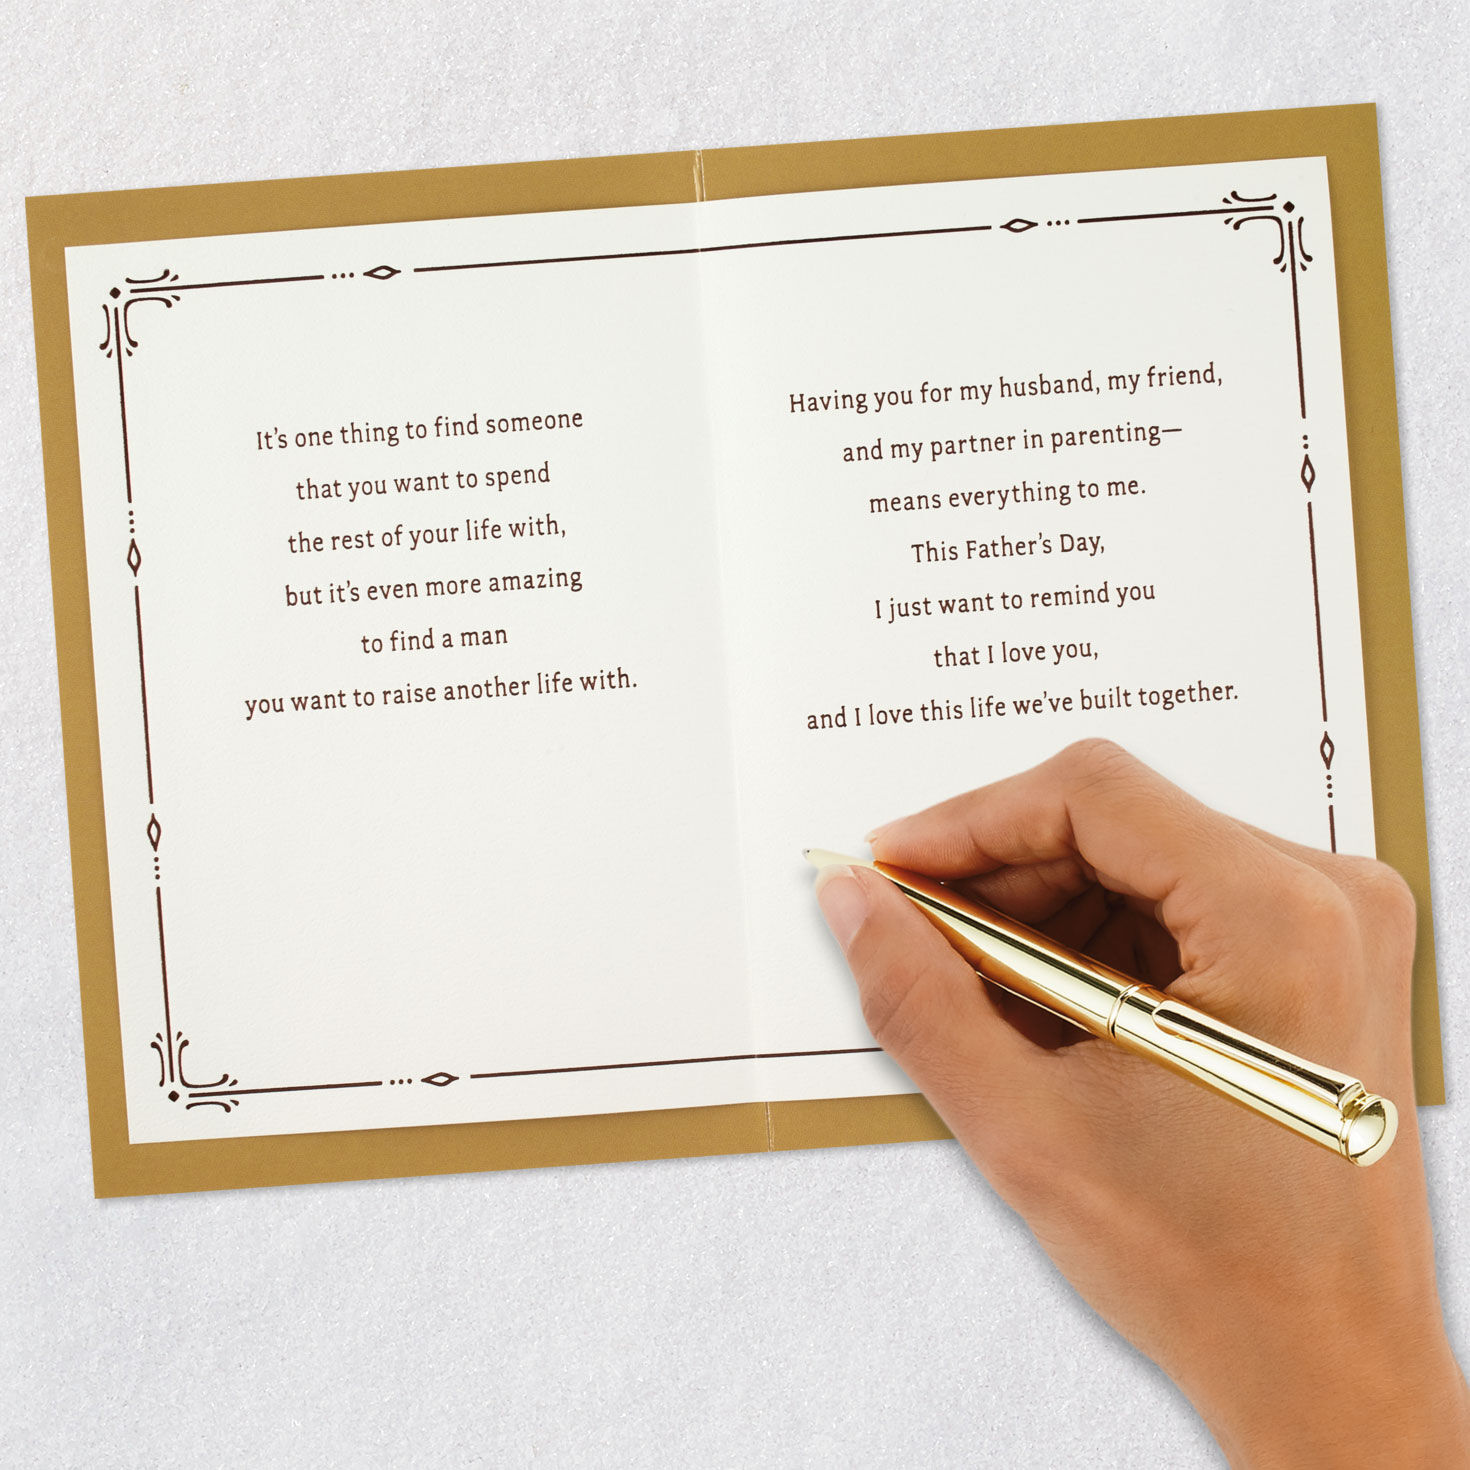 It's one thing to find someone
that you want to spend
the rest of your life with,
but it's even more amazing
to find a man
you want to raise another life with.
Having you for my husband, my friend,
and my partner in parenting—
means everything to me.
This Father's Day,
I just want to remind you
that I love you,
and I love this life we've built together.